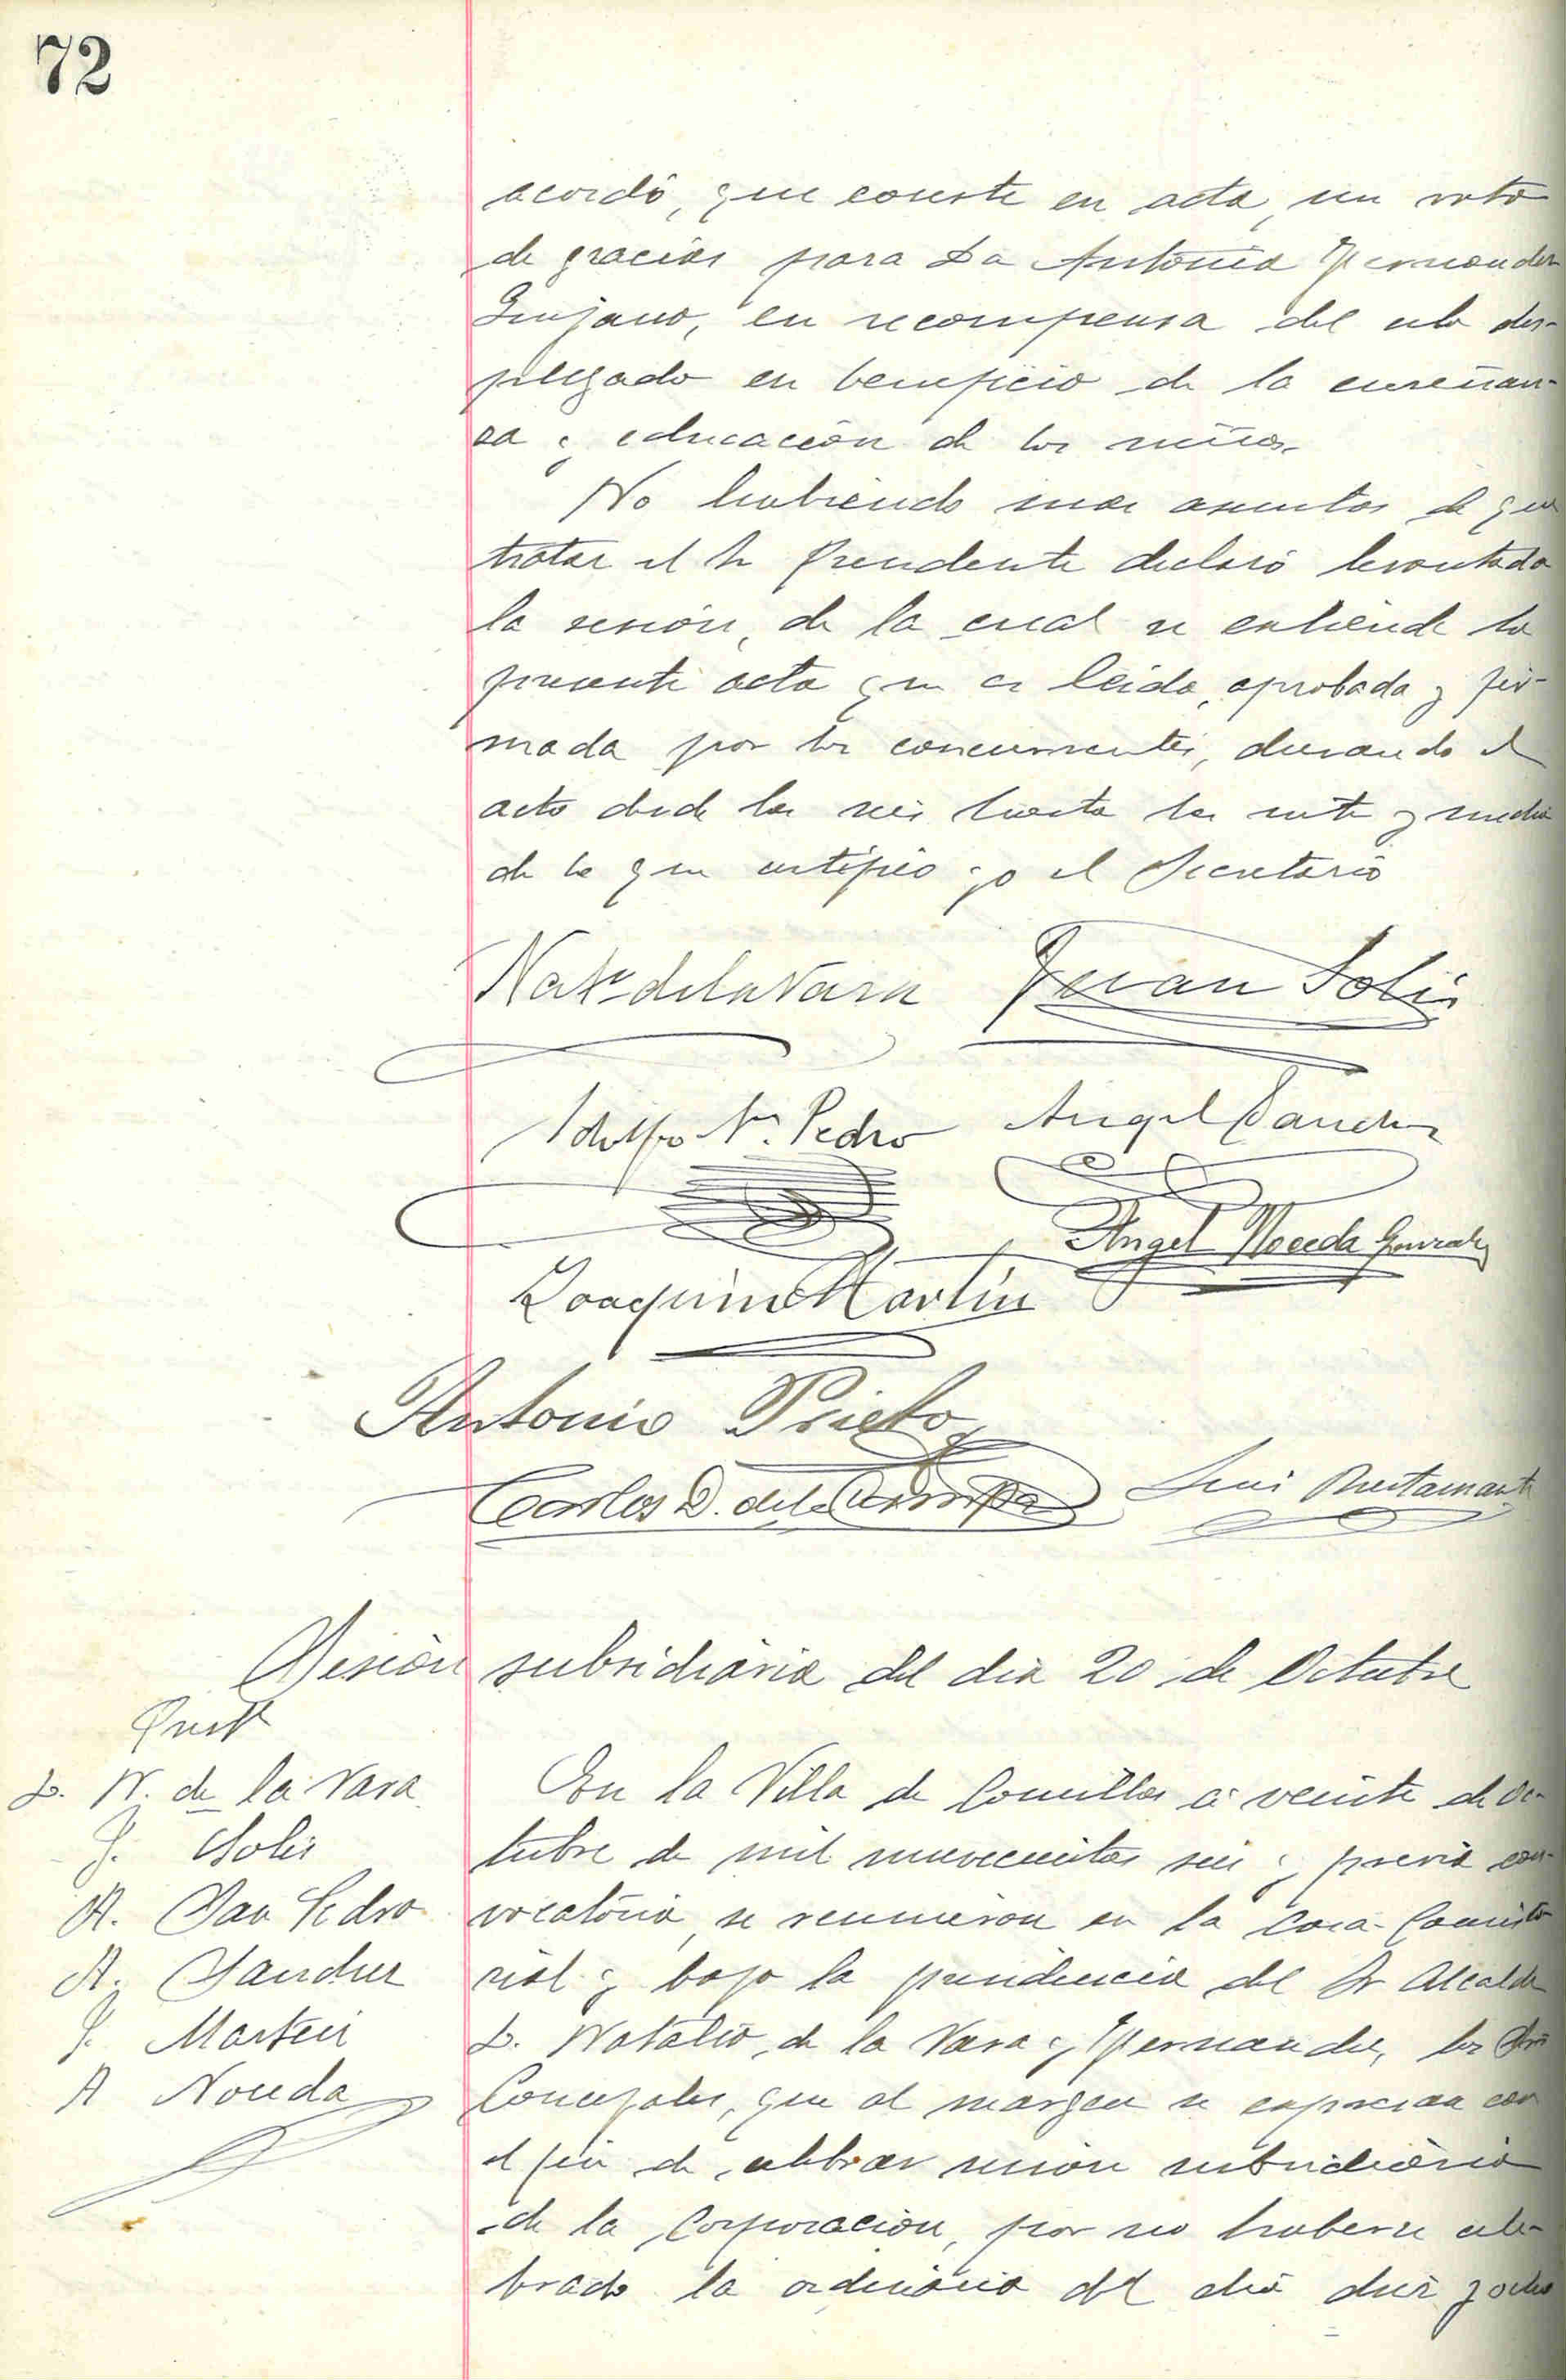 72
acordó, que conste en acta, un voto
de gracias para Da Antonia Fernandez
Quijano, en recompensa del celo des-
plegado en beneficio de la enseñan-
za y educación de los niños.
No habiendo mas asuntos de que
tratar el Sr Presidente declaró levantada
la sesión, de la cual se extiende la
presente acta que es leida, aprobada y fir-
mada por los concurrentes, durando el
acto desde las seis hasta las siete y media
de lo que certifico yo el Secretario
Nat.º de la Vara Juan Solis
Adolfo Sn. Pedro Angel Sanchez
Angel Noceda Gonzalez
Joaquin Martin
Antonio Prieto
Carlos D. de la Campa Luis Bustamante
Sesión subsidiaria del dia 20 de Octubre
Preste
D. N. de la Vara
J. Solis
A. San Pedro
A. Sanchez
J. Martin
A Noceda
En la Villa de Comillas á veinte de Oc-
tubre de mil novecientos seis y previa con-
vocatoria, se reunieron en la Casa-Consisto
rial y bajo la presidencia del Sr Alcalde
D. Natalio de la Vara y Fernandez, los Sres
Concejales, que al margen se expresan con
el fin de celebrar sesión subsidiaria
de la Corporación, por no haberse cele-
brado la ordinaria del dia diez y ocho